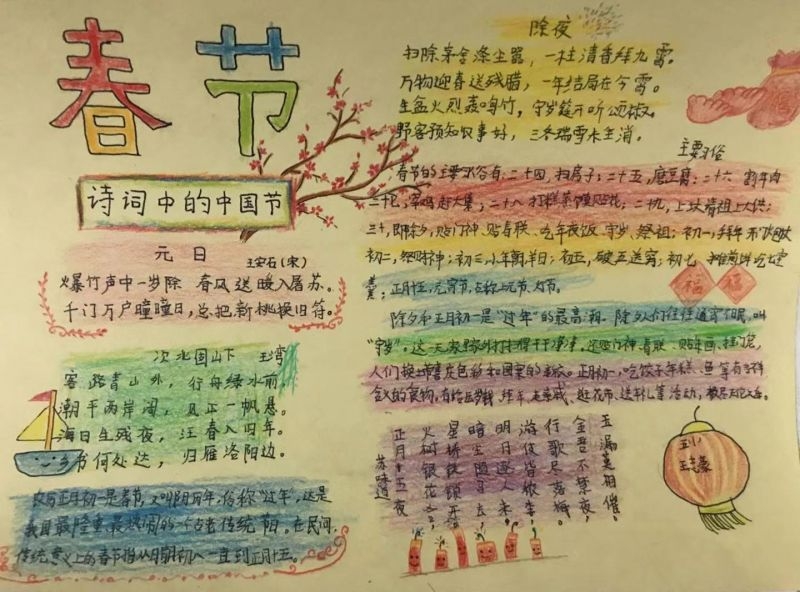 春节
诗词中的中国节
元日
王安石(宋)
爆竹声中一岁除 春风送暖入屠苏。
千门万户曈曈日,总把新桃换旧符。
次北固山下 王湾
客路青山外,行舟绿水前。
潮平两岸阔,风正一帆悬。
海日生残夜,江春入旧年。
乡书何处达,归雁洛阳边。
农历正月初一是春节,又叫阴历年,俗称“过年”,这是
我国最隆重、最热闹的一个古老传统节日。在民间,
传统意义上的春节指从腊月初八一直到正月十五。
除夜
扫除茅舍涤尘嚣,一炷清香拜九霄。
万物迎春送残腊,一年结局在今宵。
生盆火烈轰鸣竹,守岁筵开听颂椒。
野客预知农事好,三冬瑞雪未全消。
主要习俗
春节的主要习俗有:二十四,扫房子;二十五,磨豆腐;二十六 割年肉
二十七,宰鸡赶大集;二十八 打糕蒸馍贴花;二十九,上坟请祖上大供;
三十,即除夕,贴门神、贴春联、吃年夜饭、守岁、祭祖;初一,拜年
初二,祭财神;初三,小年朝羊日;初五,破五送穷;初七,摊煎饼吃七宝
羹;正月十五,元宵节,在称上元节、灯节。
福 福
除夕和正月初一是“过年”的最高潮。除夕人们往往通宵不眠,叫
“守岁”。这一天家里家外打扫得干干净净,还贴门神、春联、贴年画、挂门笼,
人们换上带喜庆色彩和图案的新衣。正月初一,吃饺子、年糕、鱼等有吉祥
含义的食物,有给压岁钱、拜年、走亲戚、逛花市、送社火等活动,
正月十五夜
苏味道
火树银花合,
星桥铁锁开。
暗尘随马去,
明月逐人来。
游伎皆秾李,
行歌尽落梅。
金吾不禁夜,
玉漏莫相催。